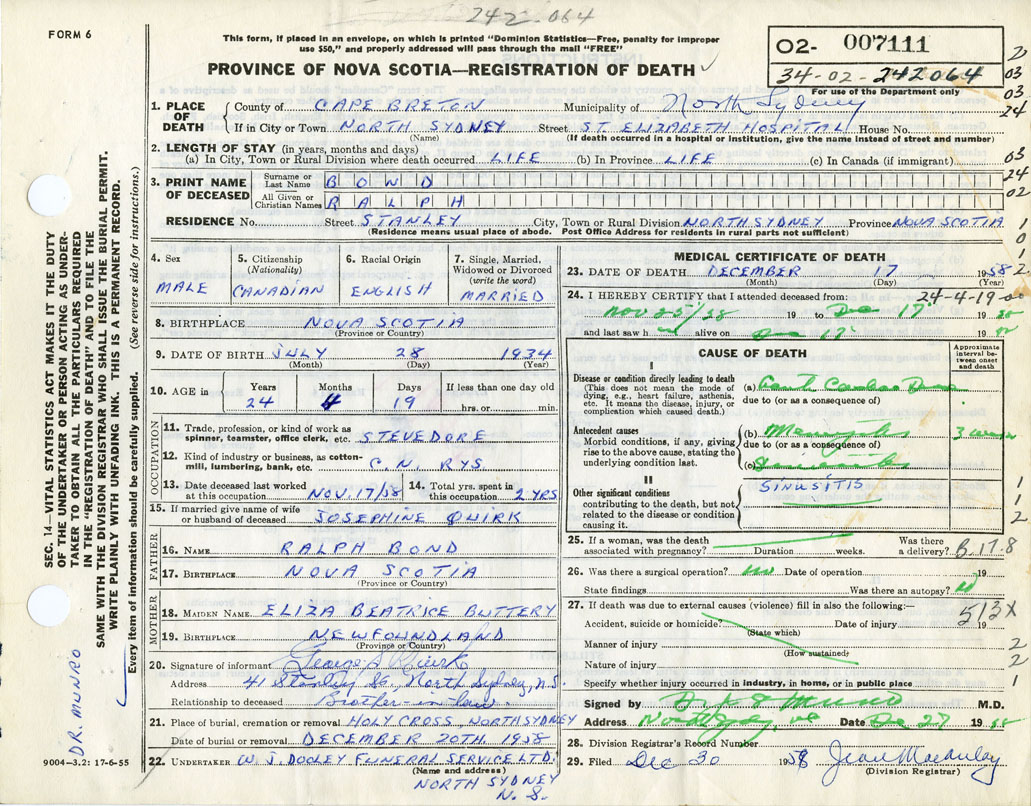 242.064
FORM 6
This form, if placed in an envelope, on which is printed "Dominion Statistics—Free, penalty for improper
use $50," and properly addressed will pass through the mail "FREE"
PROVINCE OF NOVA SCOTIA—REGISTRATION OF DEATH
02- 007111
34-02-242064
For use of the Department only
1. PLACE OF DEATH County of CAPE BRETON Municipality of North Sydney
If in City or Town NORTH SYDNEY Street ST ELIZABETH HOSPITAL House No.
(Name) (If death occurred in a hospital or institution, give the name instead of street and number)
2. LENGTH OF STAY (in years, months and days)
(a) In City, Town or Rural Division where death occurred LIFE (b) In Province LIFE (c) In Canada (if immigrant)
3. PRINT NAME OF DECEASED Surname or Last Name BOND
All Given or Christian Names RALPH
RESIDENCE No. Street STANLEY City, Town or Rural Division NORTH SYDNEY Province NOVA SCOTIA
(Residence means usual place of abode. Post Office Address for residents in rural parts not sufficient)
4. Sex MALE
5. Citizenship (Nationality) CANADIAN
6. Racial Origin ENGLISH
7. Single, Married, Widowed or Divorced (write the word) MARRIED
8. BIRTHPLACE NOVA SCOTIA
(Province or Country)
9. DATE OF BIRTH JULY 28 1934
(Month) (Day) (Year)
10. AGE in Years 24 Months 4 Days 19 If less than one day old hrs. or min.
OCCUPATION
11. Trade, profession, or kind of work as spinner, teamster, office clerk, etc. STEVEDORE
12. Kind of industry or business, as cotton-mill, lumbering, bank, etc. C.N. RYS
13. Date deceased last worked at this occupation NOV. 17/58 14. Total yrs. spent in this occupation 2 YRS
15. If married give name of wife or husband of deceased JOSEPHINE QUIRK
FATHER
16. NAME RALPH BOND
17. BIRTHPLACE NOVA SCOTIA
(Province or Country)
MOTHER
18. MAIDEN NAME ELIZA BEATRICE BUTTERY
19. BIRTHPLACE NEWFOUNDLAND
(Province or Country)
20. Signature of informant George S Quirk
Address 41 Stanley St., North Sydney, N.S.
Relationship to deceased Brother-in-law
21. Place of burial, cremation or removal HOLY CROSS, NORTH SYDNEY
Date of burial or removal DECEMBER 20TH 1958
22. UNDERTAKER W. J. DOOLEY FUNERAL SERVICE LTD.
(Name and address)
NORTH SYDNEY
N. S.
MEDICAL CERTIFICATE OF DEATH
23. DATE OF DEATH DECEMBER 17 1958
(Month) (Day) (Year)
24. I HEREBY CERTIFY that I attended deceased from: 24-4-19
Nov 25/58 19 to Dec 17 19
and last saw h alive on Dec 17 19
CAUSE OF DEATH
Approximate interval between onset and death
I
Disease or condition directly leading to death
(This does not mean the mode of dying, e.g., heart failure, asthenia, etc. It means the disease, injury, or complication which caused death.)
(a)
due to (or as a consequence of)
Antecedent causes
Morbid conditions, if any, giving rise to the above cause, stating the underlying condition last.
(b) 3
due to (or as a consequence of)
(c) Sinusitis
II
SINUSITIS
Other significant conditions
contributing to the death, but not related to the disease or condition causing it.
25. If a woman, was the death associated with pregnancy? Duration weeks. Was there a delivery? B.17.8
26. Was there a surgical operation? no Date of operation 19
State findings Was there an autopsy?
27. If death was due to external causes (violence) fill in also the following:—
513X
Accident, suicide or homicide? Date of injury 19
(State which)
Manner of injury
(How sustained)
Nature of injury
Specify whether injury occurred in industry, in home, or in public place
Signed by Munro M.D.
Address North Sydney, NS Date Dec 27 1958
28. Division Registrar's Record Number
29. Filed Dec 30 1958 Jean MacAulay
(Division Registrar)
SEC. 14—VITAL STATISTICS ACT MAKES IT THE DUTY
OF THE UNDERTAKER OR PERSON ACTING AS UNDER-
TAKER TO OBTAIN ALL THE PARTICULARS REQUIRED
IN THE "REGISTRATION OF DEATH" AND TO FILE THE
SAME WITH THE DIVISION REGISTRAR WHO SHALL ISSUE THE BURIAL PERMIT.
WRITE PLAINLY WITH UNFADING INK. THIS IS A PERMANENT RECORD.
Every item of information should be carefully supplied. (See reverse side for instructions.)
DR. MUNRO
9004-3.2: 17-6-55
2
03
03
24
03
24
02
1
0
1
2
1
1
2
2
2
1